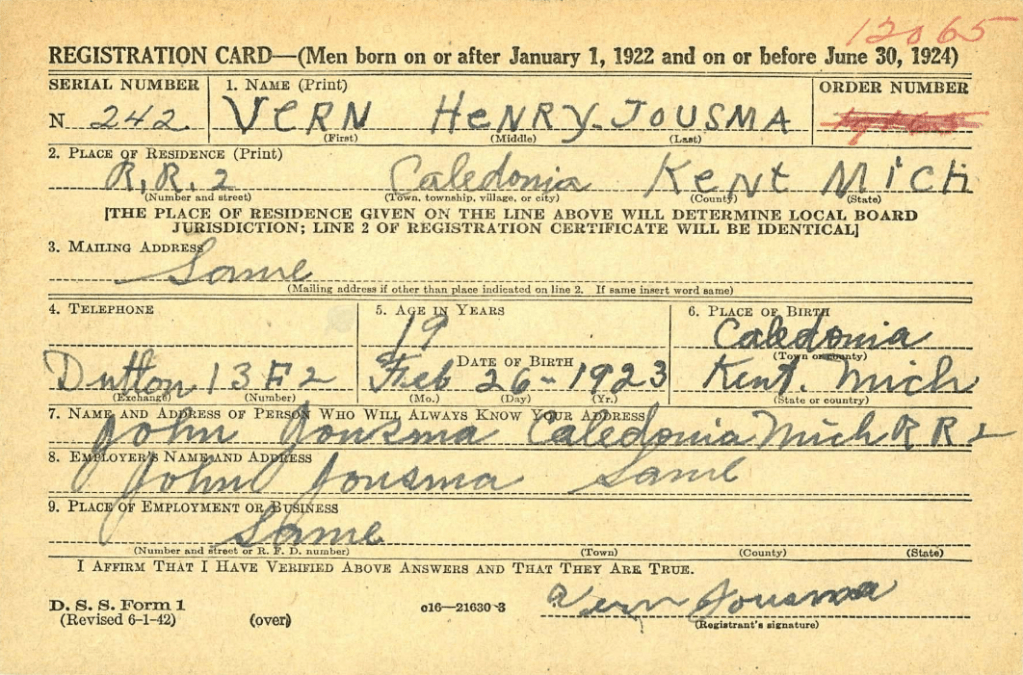 12065
REGISTRATION CARD—(Men born on or after January 1, 1922 and on or before June 30, 1924)
SERIAL NUMBER 1. NAME (Print) ORDER NUMBER
N 242 VERN HENRY JOUSMA
(First) (Middle) (Last)
2. PLACE OF RESIDENCE (Print)
R.R. 2 Caledonia Kent Mich
(Number and street) (Town, township, village, or city) (County) (State)
[THE PLACE OF RESIDENCE GIVEN ON THE LINE ABOVE WILL DETERMINE LOCAL BOARD
JURISDICTION; LINE 2 OF REGISTRATION CERTIFICATE WILL BE IDENTICAL]
3. MAILING ADDRESS
Same
(Mailing address if other than place indicated on line 2. If same insert word same)
4. TELEPHONE 5. AGE IN YEARS 6. PLACE OF BIRTH
19 Caledonia
DATE OF BIRTH (Town or county)
Dutton 13F2 Feb 26-1923 Kent. Mich
(Exchange) (Number) (Mo.) (Day) (Yr.) (State or country)
7. NAME AND ADDRESS OF PERSON WHO WILL ALWAYS KNOW YOUR ADDRESS
John Jousma Caledonia Mich R R 2
8. EMPLOYER'S NAME AND ADDRESS
John Jousma Same
9. PLACE OF EMPLOYMENT OR BUSINESS
Same
(Number and street or R. F. D. number) (Town) (County) (State)
I AFFIRM THAT I HAVE VERIFIED ABOVE ANSWERS AND THAT THEY ARE TRUE.
Vern Jousma
D. S. S. Form 1 c16—21630-3
(Revised 6-1-42) (over) (Registrant's signature)